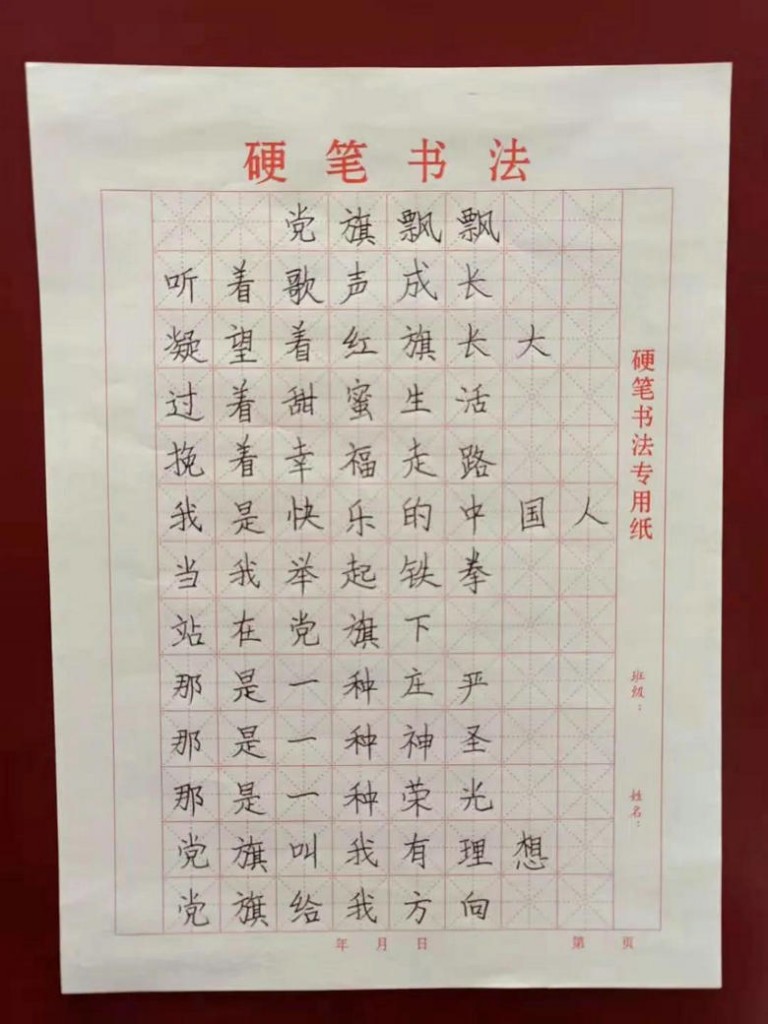 硬笔书法
党旗飘飘
听着歌声成长
凝望着红旗长大
过着甜蜜生活
挽着幸福走路
我是快乐的中国人
当我举起铁拳
站在党旗下
那是一种庄严
那是一种神圣
那是一种荣光
党旗叫我有理想
党旗给我方向
硬笔书法专用纸
班级：
姓名：
年 月 日
第 页